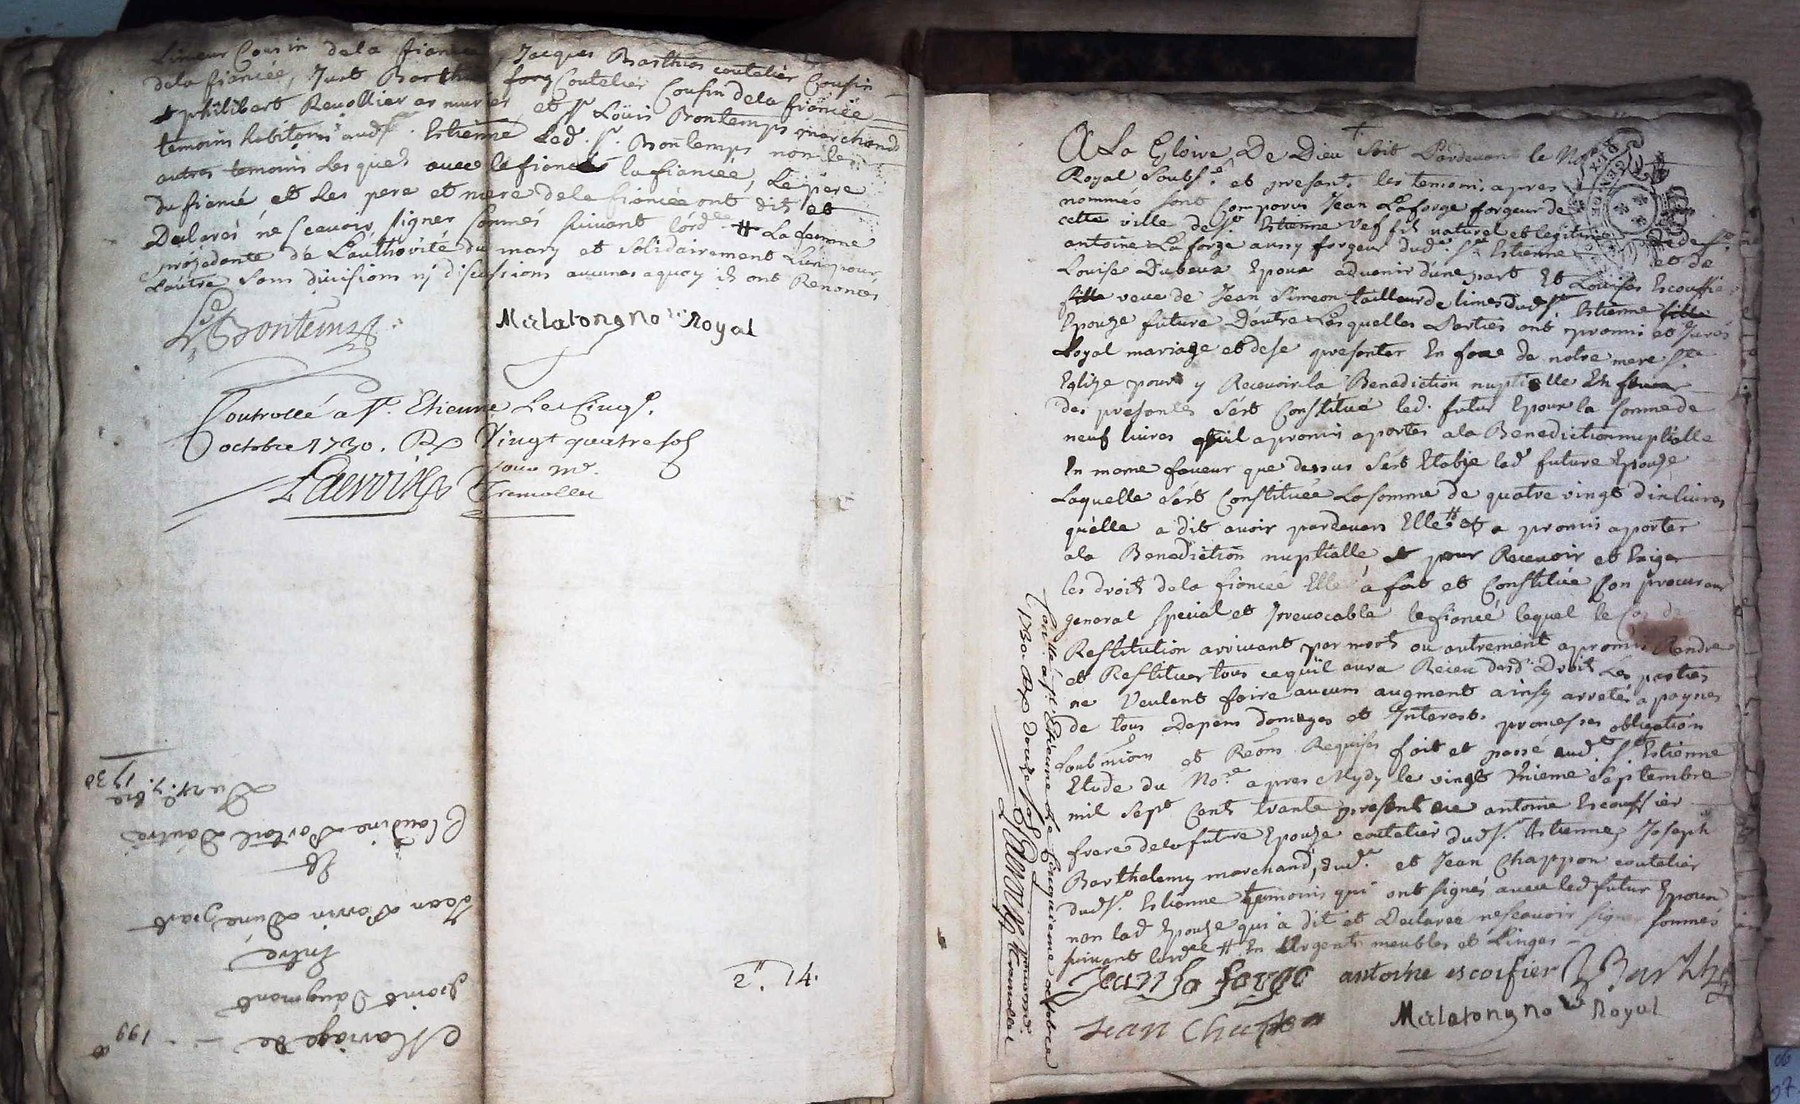 Limeur Cousin dela fiancée, Jacques Barthas coutelier Cousin
dela fiancée, Just Barthas forg Coutelier Cousin dela fiancée
philibert Revollier armurier et Sr. Loüis Bontemps marchand
temoins habitans audSt. Estienne Led. Sr. Bontemps non les
autres temoins Lesquels avec le fiancé la fiancée, Le pere
du fiancé, et Les pere et mere dela fiancée ont dit et
Declarés ne scavoir signer sommés suivant lord.ce # La femme
procedante de L'authorité du mary et solidairement L'un pour
L'autre sans divisions ny discussions aucunes aquoy ils ont Renoncés
Bontems
Marlatong no.re Royal
Controllé a St. Etienne Le Cinq.
octobre 1730. R. Vingt quatre sols
pour mr.
Tremollet
2." 14.
Mariage de
199
point d'augment
Entre
Jean Dune part
Et
Claudine D'autre
Du 7.bre
1730
A La Gloire De Dieu soit Pardevant le No.re
Royal Soubs.é et presents les temoins apres
nommés sont Comparus Jean Laforge forgeur de
cette ville de St. Estienne naturel et legitime
antoine Laforge aussy forgeur dud. St. Estienne et de
Louise Dubeux Epoux advenir d'une part Et Loüise Escoffie
fille veuve de Jean Simeon tailleur de limes dud St. Estienne fille
Epouze future D'autre Lesquelles Parties ont promi et Jurés
Loyal mariage et de se presenter En face de notre mere Ste.
Eglize pour y Recevoir la Benediction nuptialle En faveur
des presentes sest Constitué led. futur Epoux la somme de
neuf livres quil a promis aporter ala Benediction nuptialle
En mame faveur que dessus sest Etablye lad future Epouze
Laquelle sest Constituée La somme de quatre vingt dix livres
quelle a dit avoir pardevers Elle # et a promis aporter
ala Benediction nuptialle et pour Recevoir et Exiger
les droits dela fiancée Elle a fait et Constitüé son procureur
general special et Irrevocable le fiancé lequel le Cas de
Restitution arrivant par mort ou autrement a promis Rendre
et Restituer tous ce quil aura Receu desd. Droits Les parties
ne Veulent faire aucun augment ainsy arretés a paynes
de tous Depens domages et Interests. promesses obligation
soubmion et Reõns Requises fait et passé aud. St. Estienne
Etude du No.re apres Mydy le vingt Unieme Septembre
mil sept Cent trante presents antoine Escoffier
frere dela future Epouze coutelier dud St. Estienne, Joseph
Barthelemy marchand dud. et Jean Chappon coutelier
dud St. Estienne temoins qui ont signés avec led futur Epoux
non lad Epouze qui a dit et Declarée ne scavoir signer sommés
suivant lord.ce # En Argent meubles et Linges
Jean la forge antoine escoifier J Barthe
Jean Chapon Marlatong no.re Royal
Con.llé a St. Etienne Le Cinquieme octobre
1730. R. Douze sols pour mr.
Tremollet